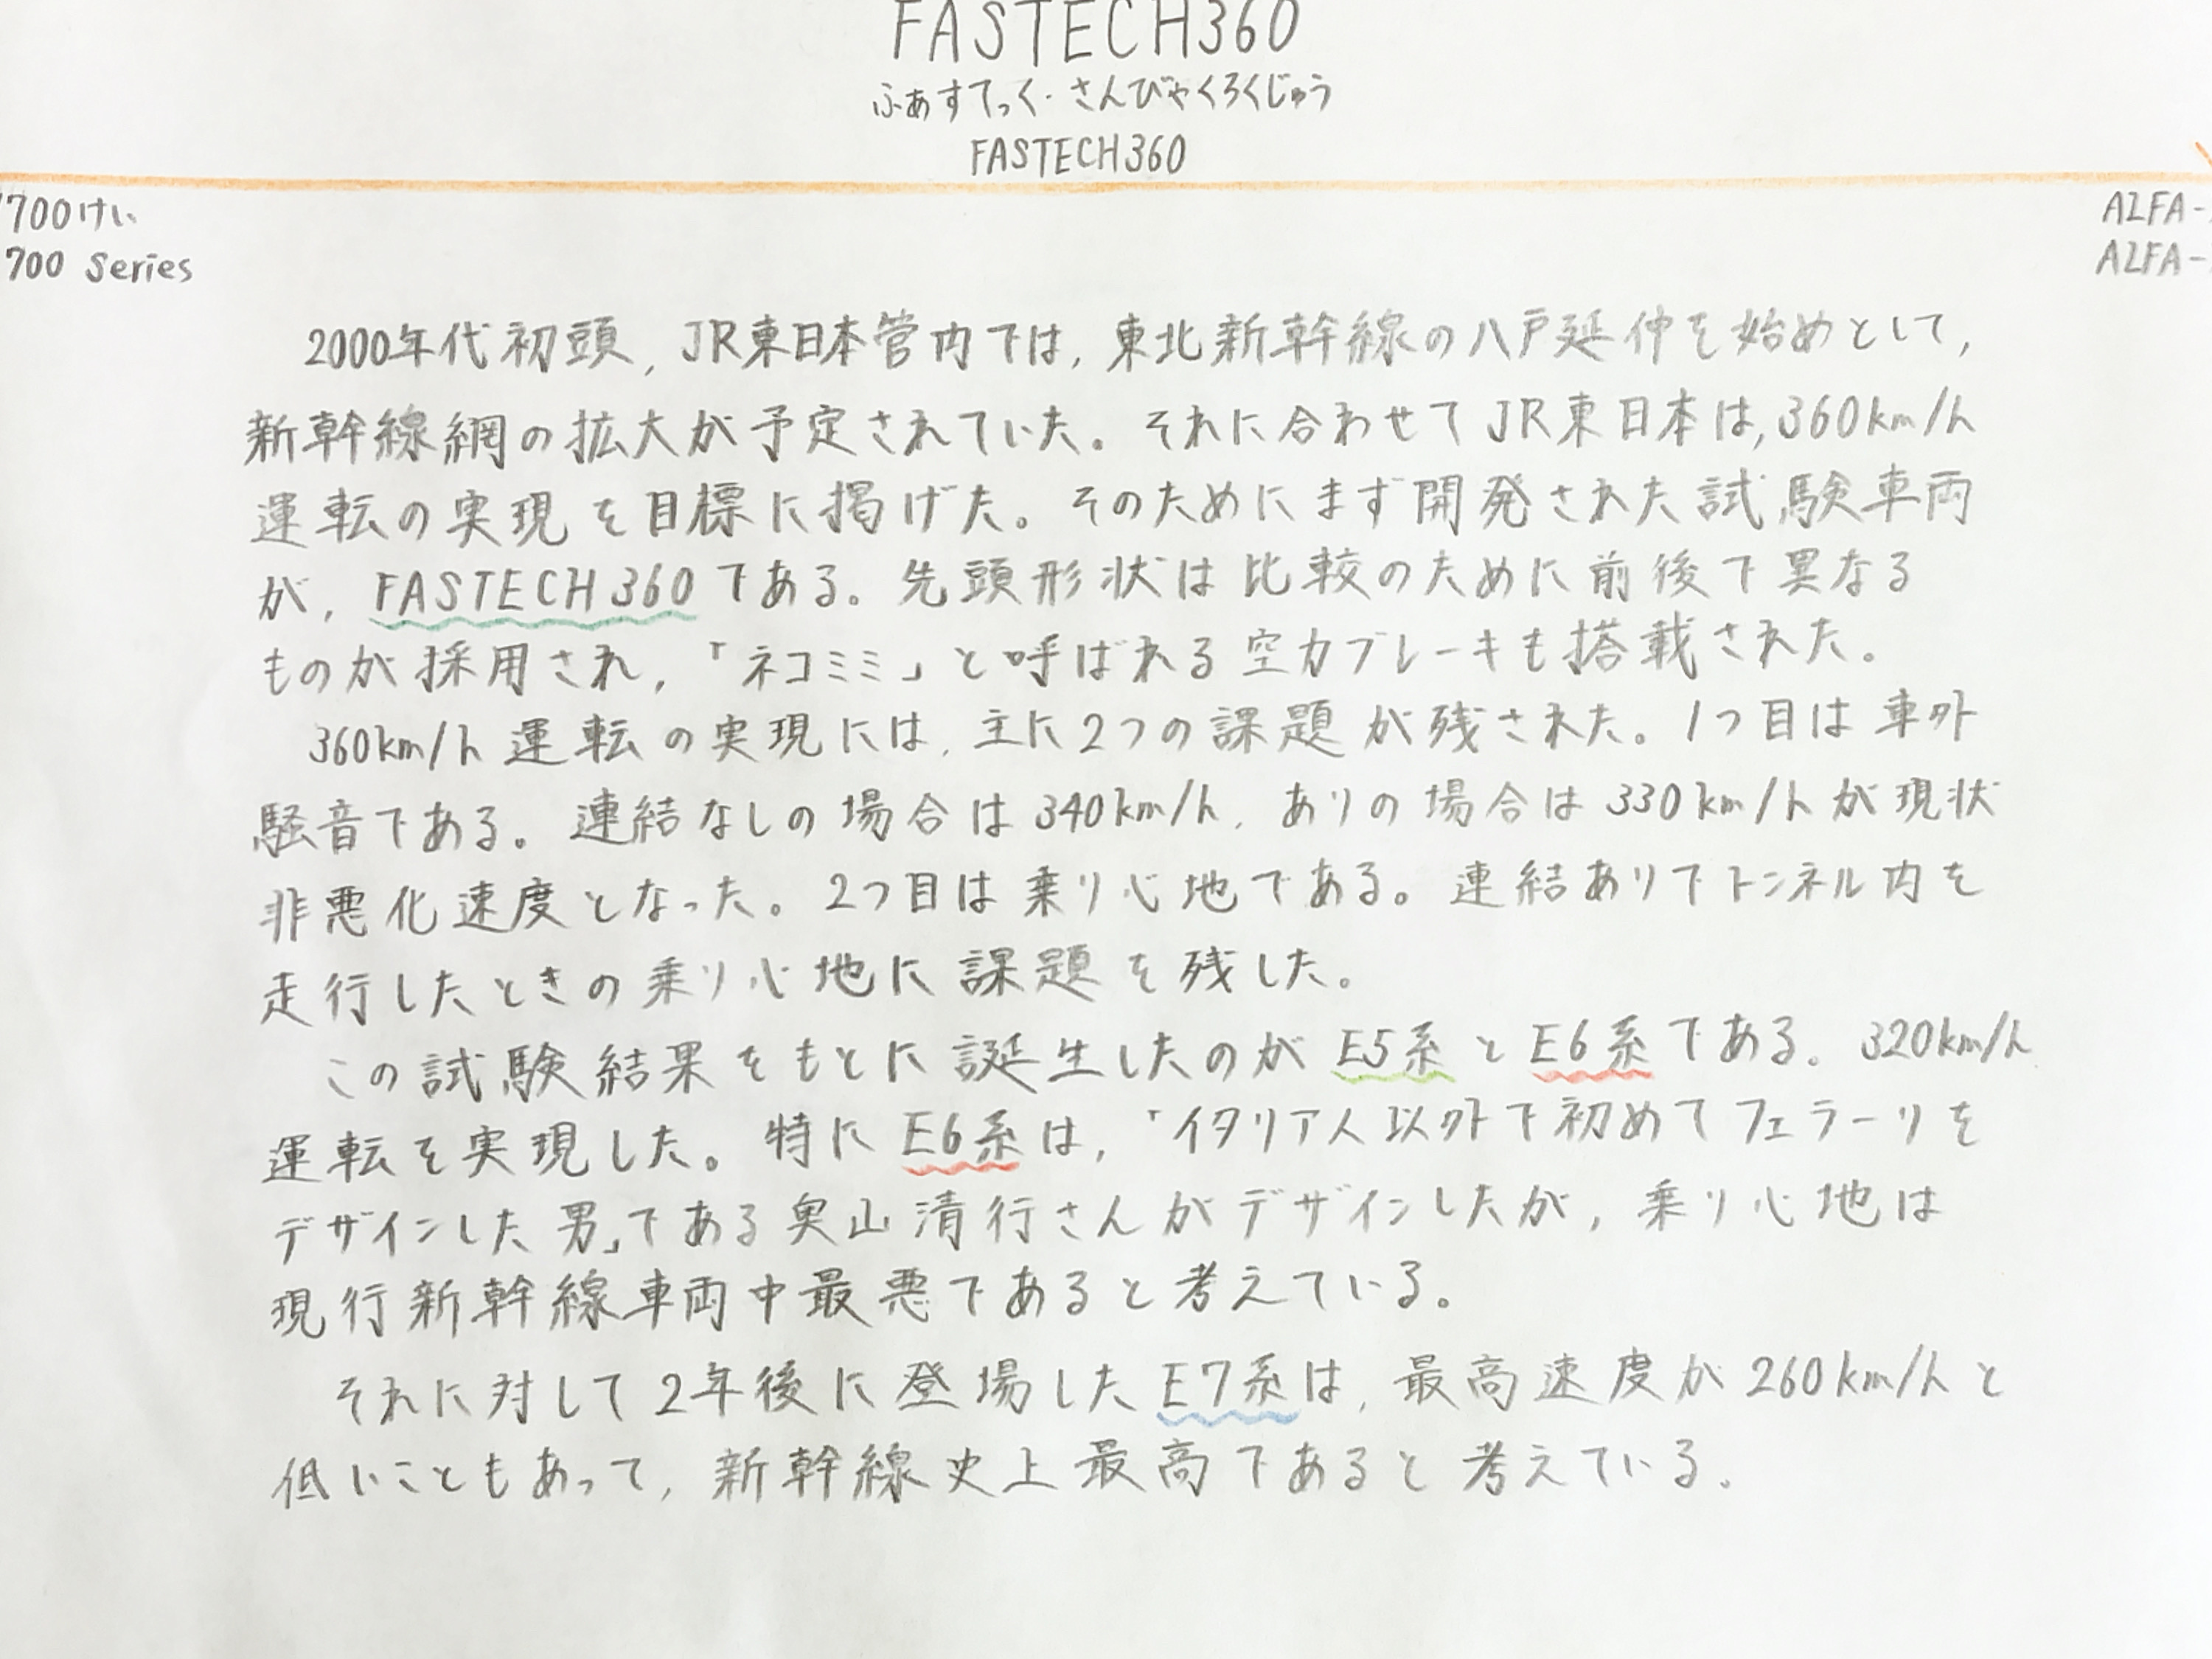 FASTECH360
ふぁすてっく・さんびゃくろくじゅう
FASTECH360
700けい
700 Series
ALFA-
ALFA-
2000年代初頭,JR東日本管内では,東北新幹線の八戸延伸を始めとして,
新幹線網の拡大が予定されていた。それに合わせてJR東日本は,360km/h
運転の実現を目標に掲げた。そのためにまず開発された試験車両
が,FASTECH360である。先頭形状は比較のために前後で異なる
ものが採用され,「ネコミミ」と呼ばれる空力ブレーキも搭載された。
360km/h運転の実現には,主に2つの課題が残された。1つ目は車外
騒音である。連結なしの場合は340km/h,ありの場合は330km/hが現状
非悪化速度となった。2つ目は乗り心地である。連結ありでトンネル内を
走行したときの乗り心地に課題を残した。
この試験結果をもとに誕生したのがE5系とE6系である。320km/h
運転を実現した。特にE6系は,「イタリア人以外で初めてフェラーリを
デザインした男」である奥山清行さんがデザインしたが,乗り心地は
現行新幹線車両中最悪であると考えている。
それに対して2年後に登場したE7系は,最高速度が260km/hと
低いこともあって,新幹線史上最高であると考えている。